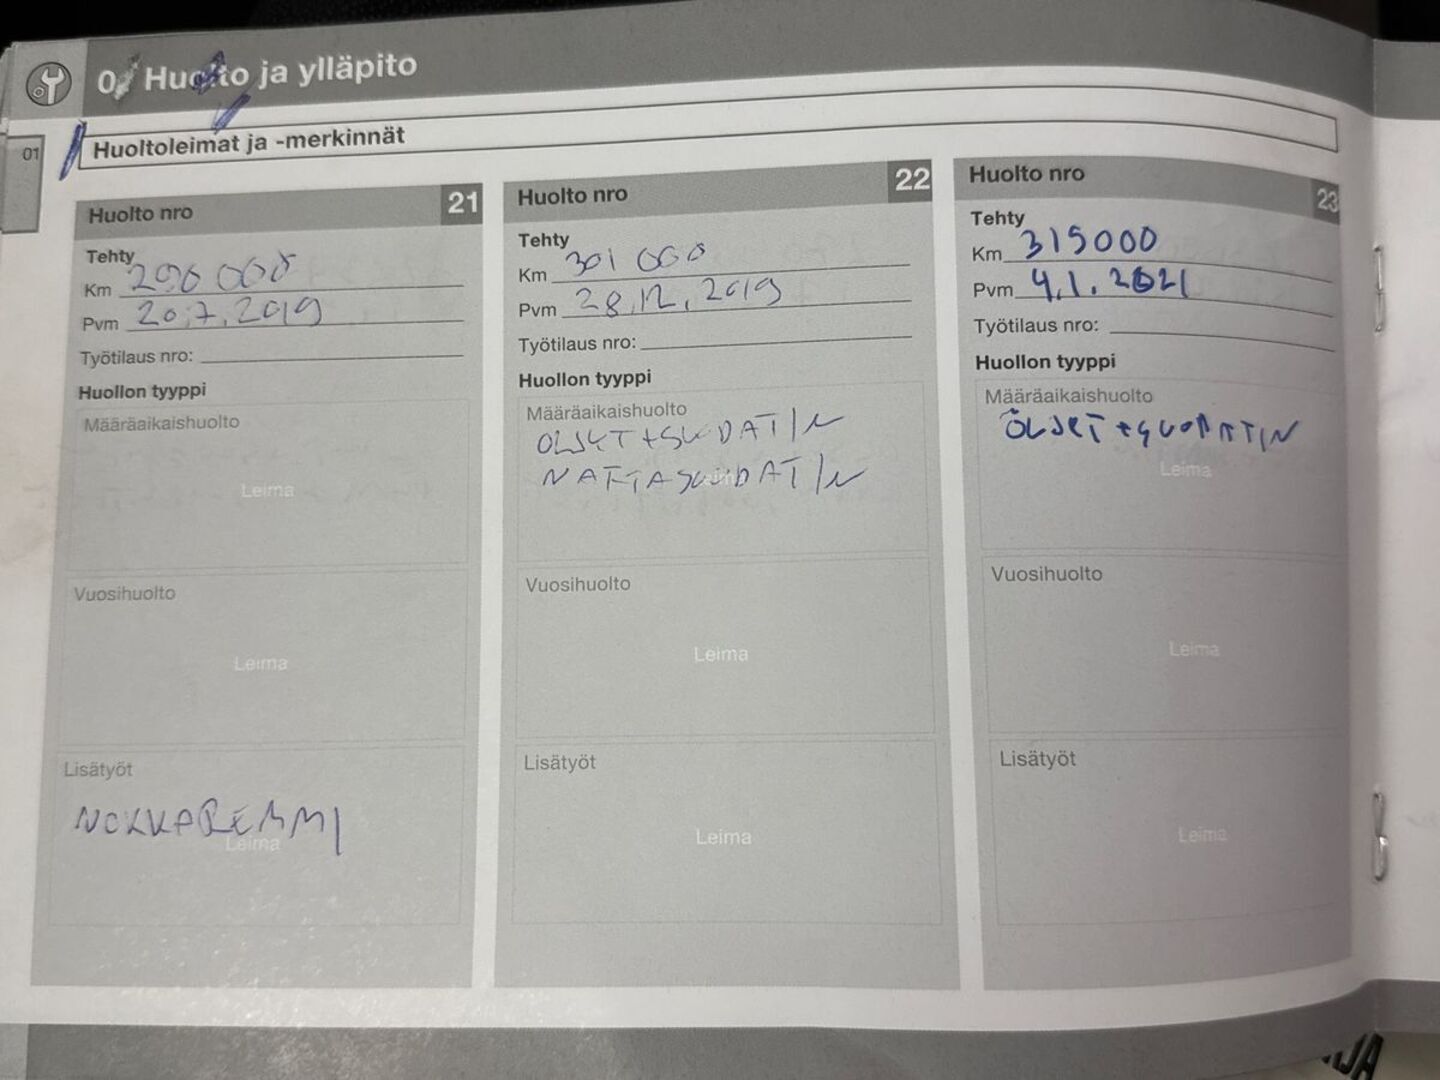 Huolto ja ylläpito
01
Huoltoleimat ja -merkinnät
Huolto nro 21
Tehty
Km 290 000
Pvm 20.7.2019
Työtilaus nro:
Huollon tyyppi
Määräaikaishuolto
Leima
Vuosihuolto
Leima
Lisätyöt
NOKKAREMMI
Leima
Huolto nro 22
Tehty
Km 301 000
Pvm 28.12.2019
Työtilaus nro:
Huollon tyyppi
Määräaikaishuolto
ÖLJYT+SUODATIN
RAITISSUODATIN
Leima
Vuosihuolto
Leima
Lisätyöt
Leima
Huolto nro 23
Tehty
Km 315000
Pvm 4.1.2021
Työtilaus nro:
Huollon tyyppi
Määräaikaishuolto
ÖLJYT+SUODATIN
Leima
Vuosihuolto
Leima
Lisätyöt
Leima